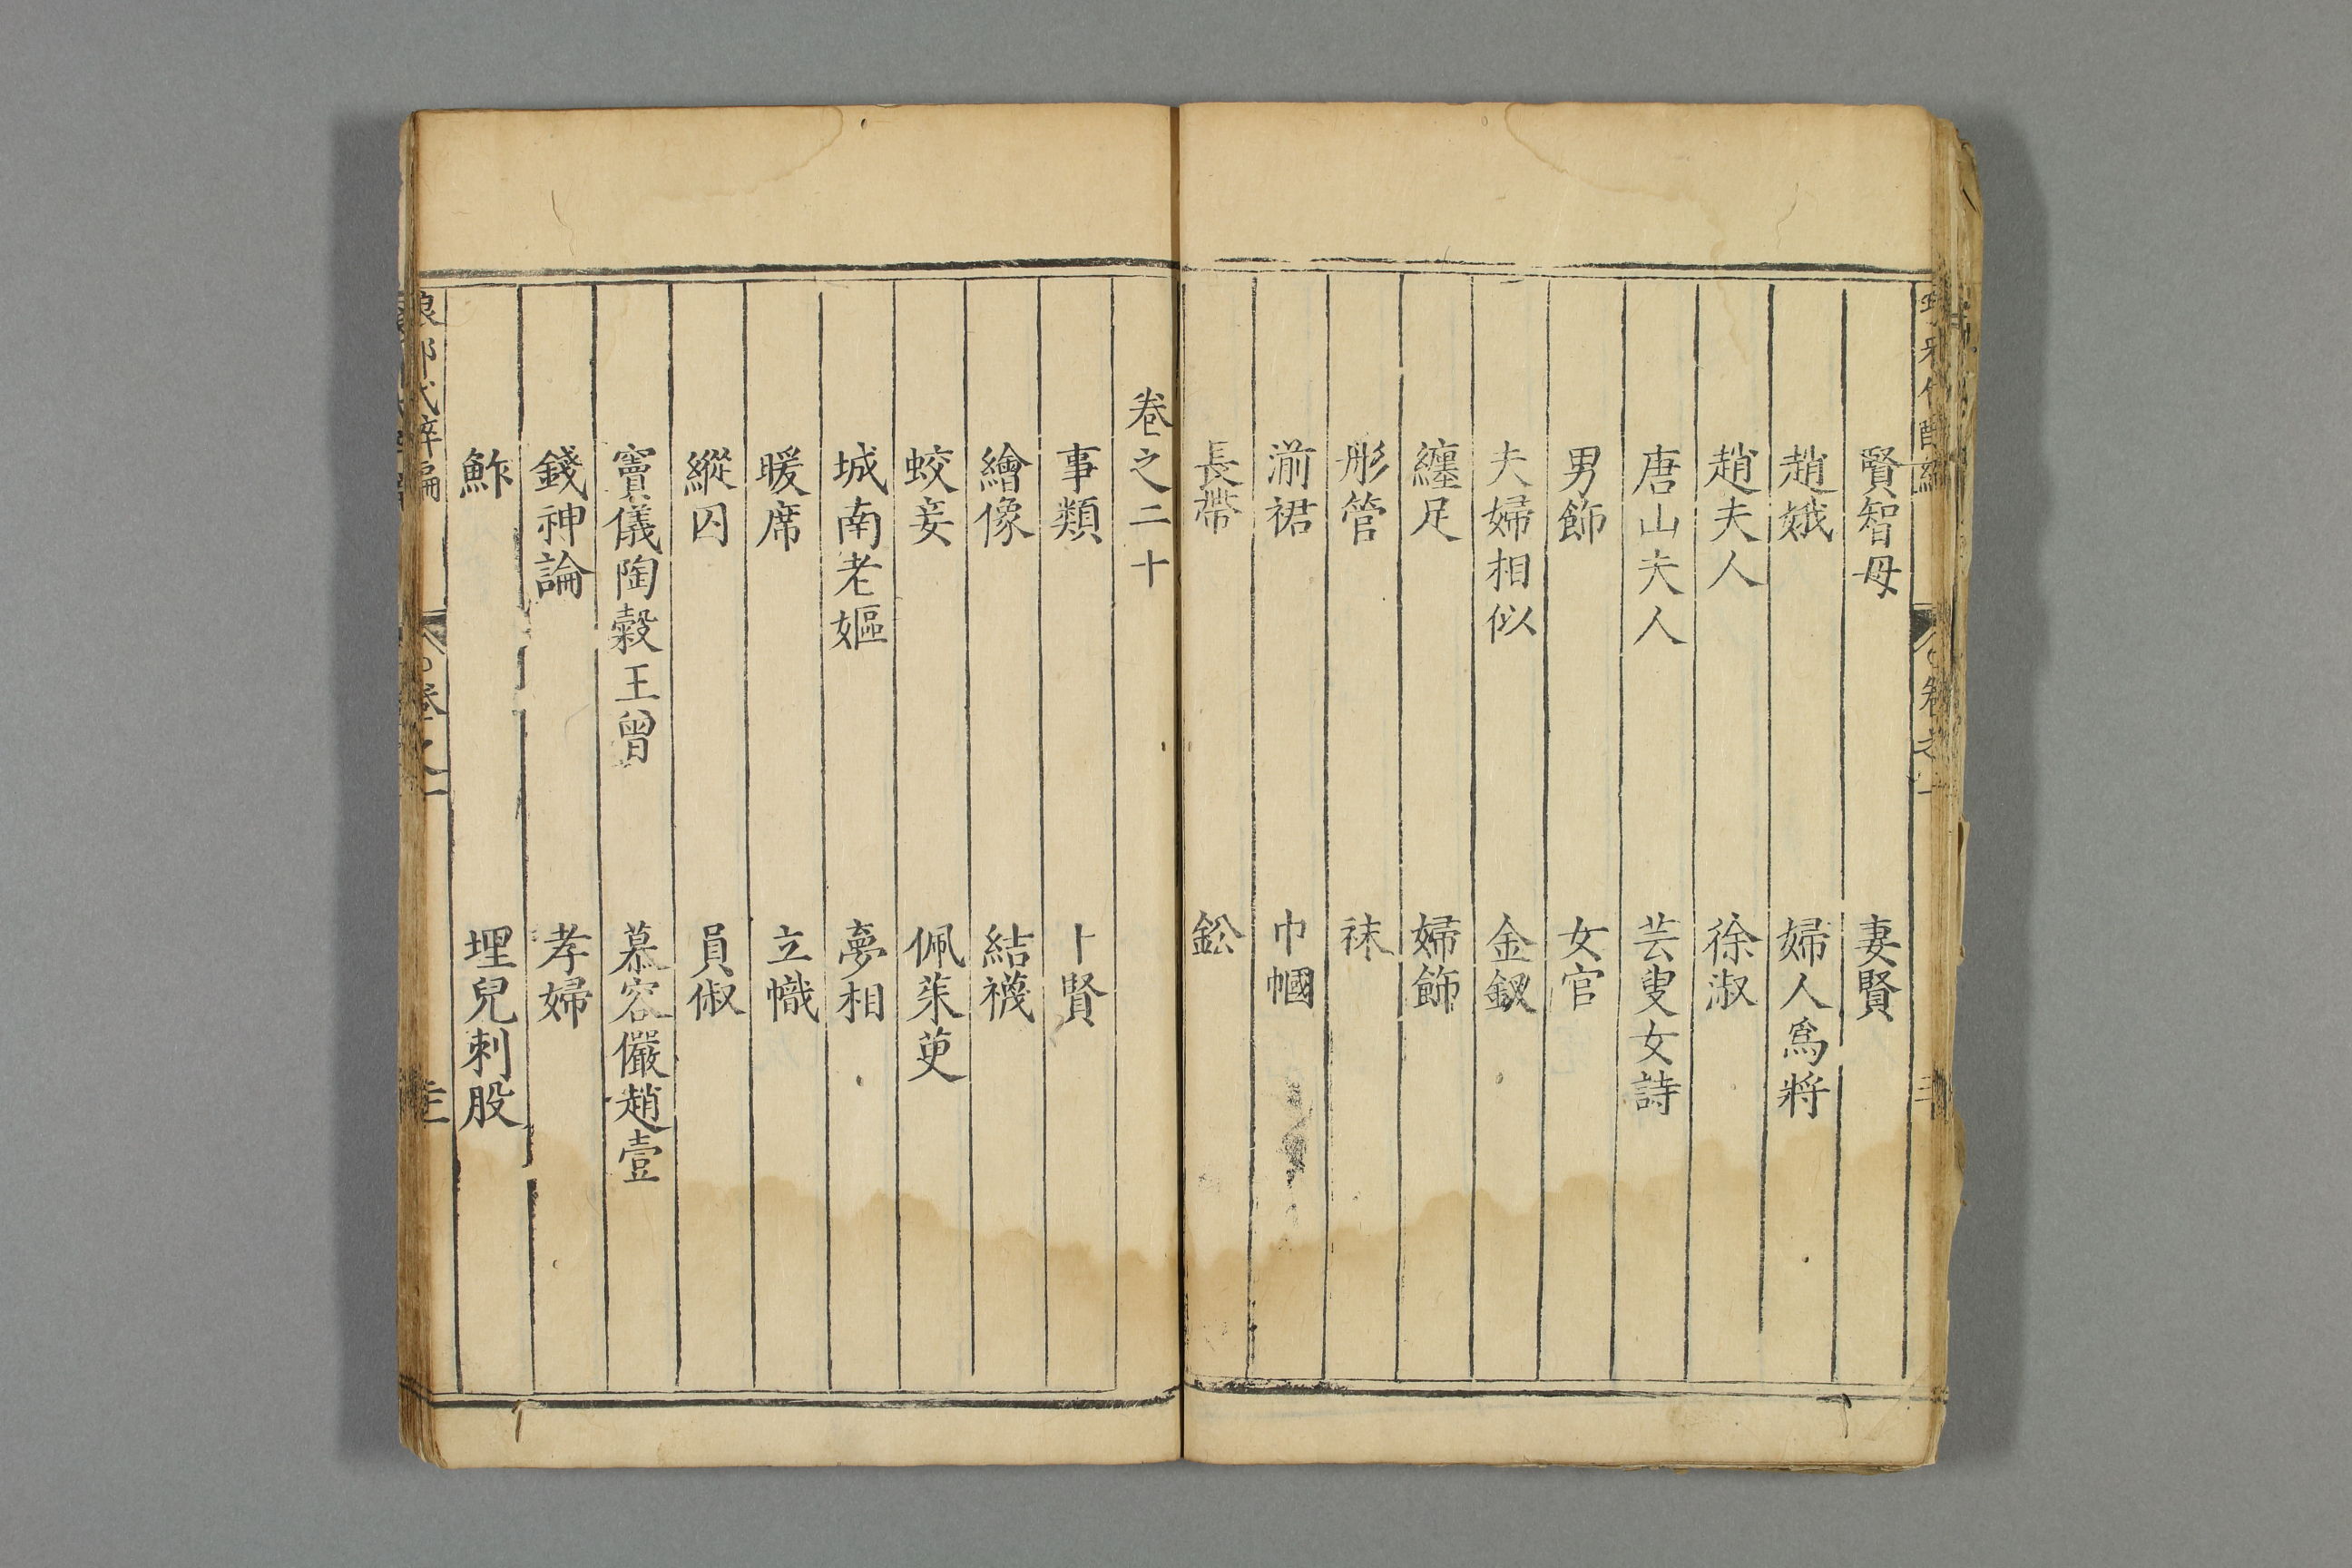 賢智母　妻賢
趙娥　婦人爲將
趙夫人　徐淑
唐山夫人　芸叟女詩
男飾　女官
夫婦相似　金釵
纏足　婦飾
彤管　袜
湔裙　巾幗
長帶　鈆
卷之二十
事類　卜賢
繪像　結襪
蛟妾　佩茱萸
城南老嫗　夢相
暖席　立幟
縱囚　員俶
竇儀陶穀王曾　慕容儼趙壹
錢神論　孝婦
鮓　埋兒刺股